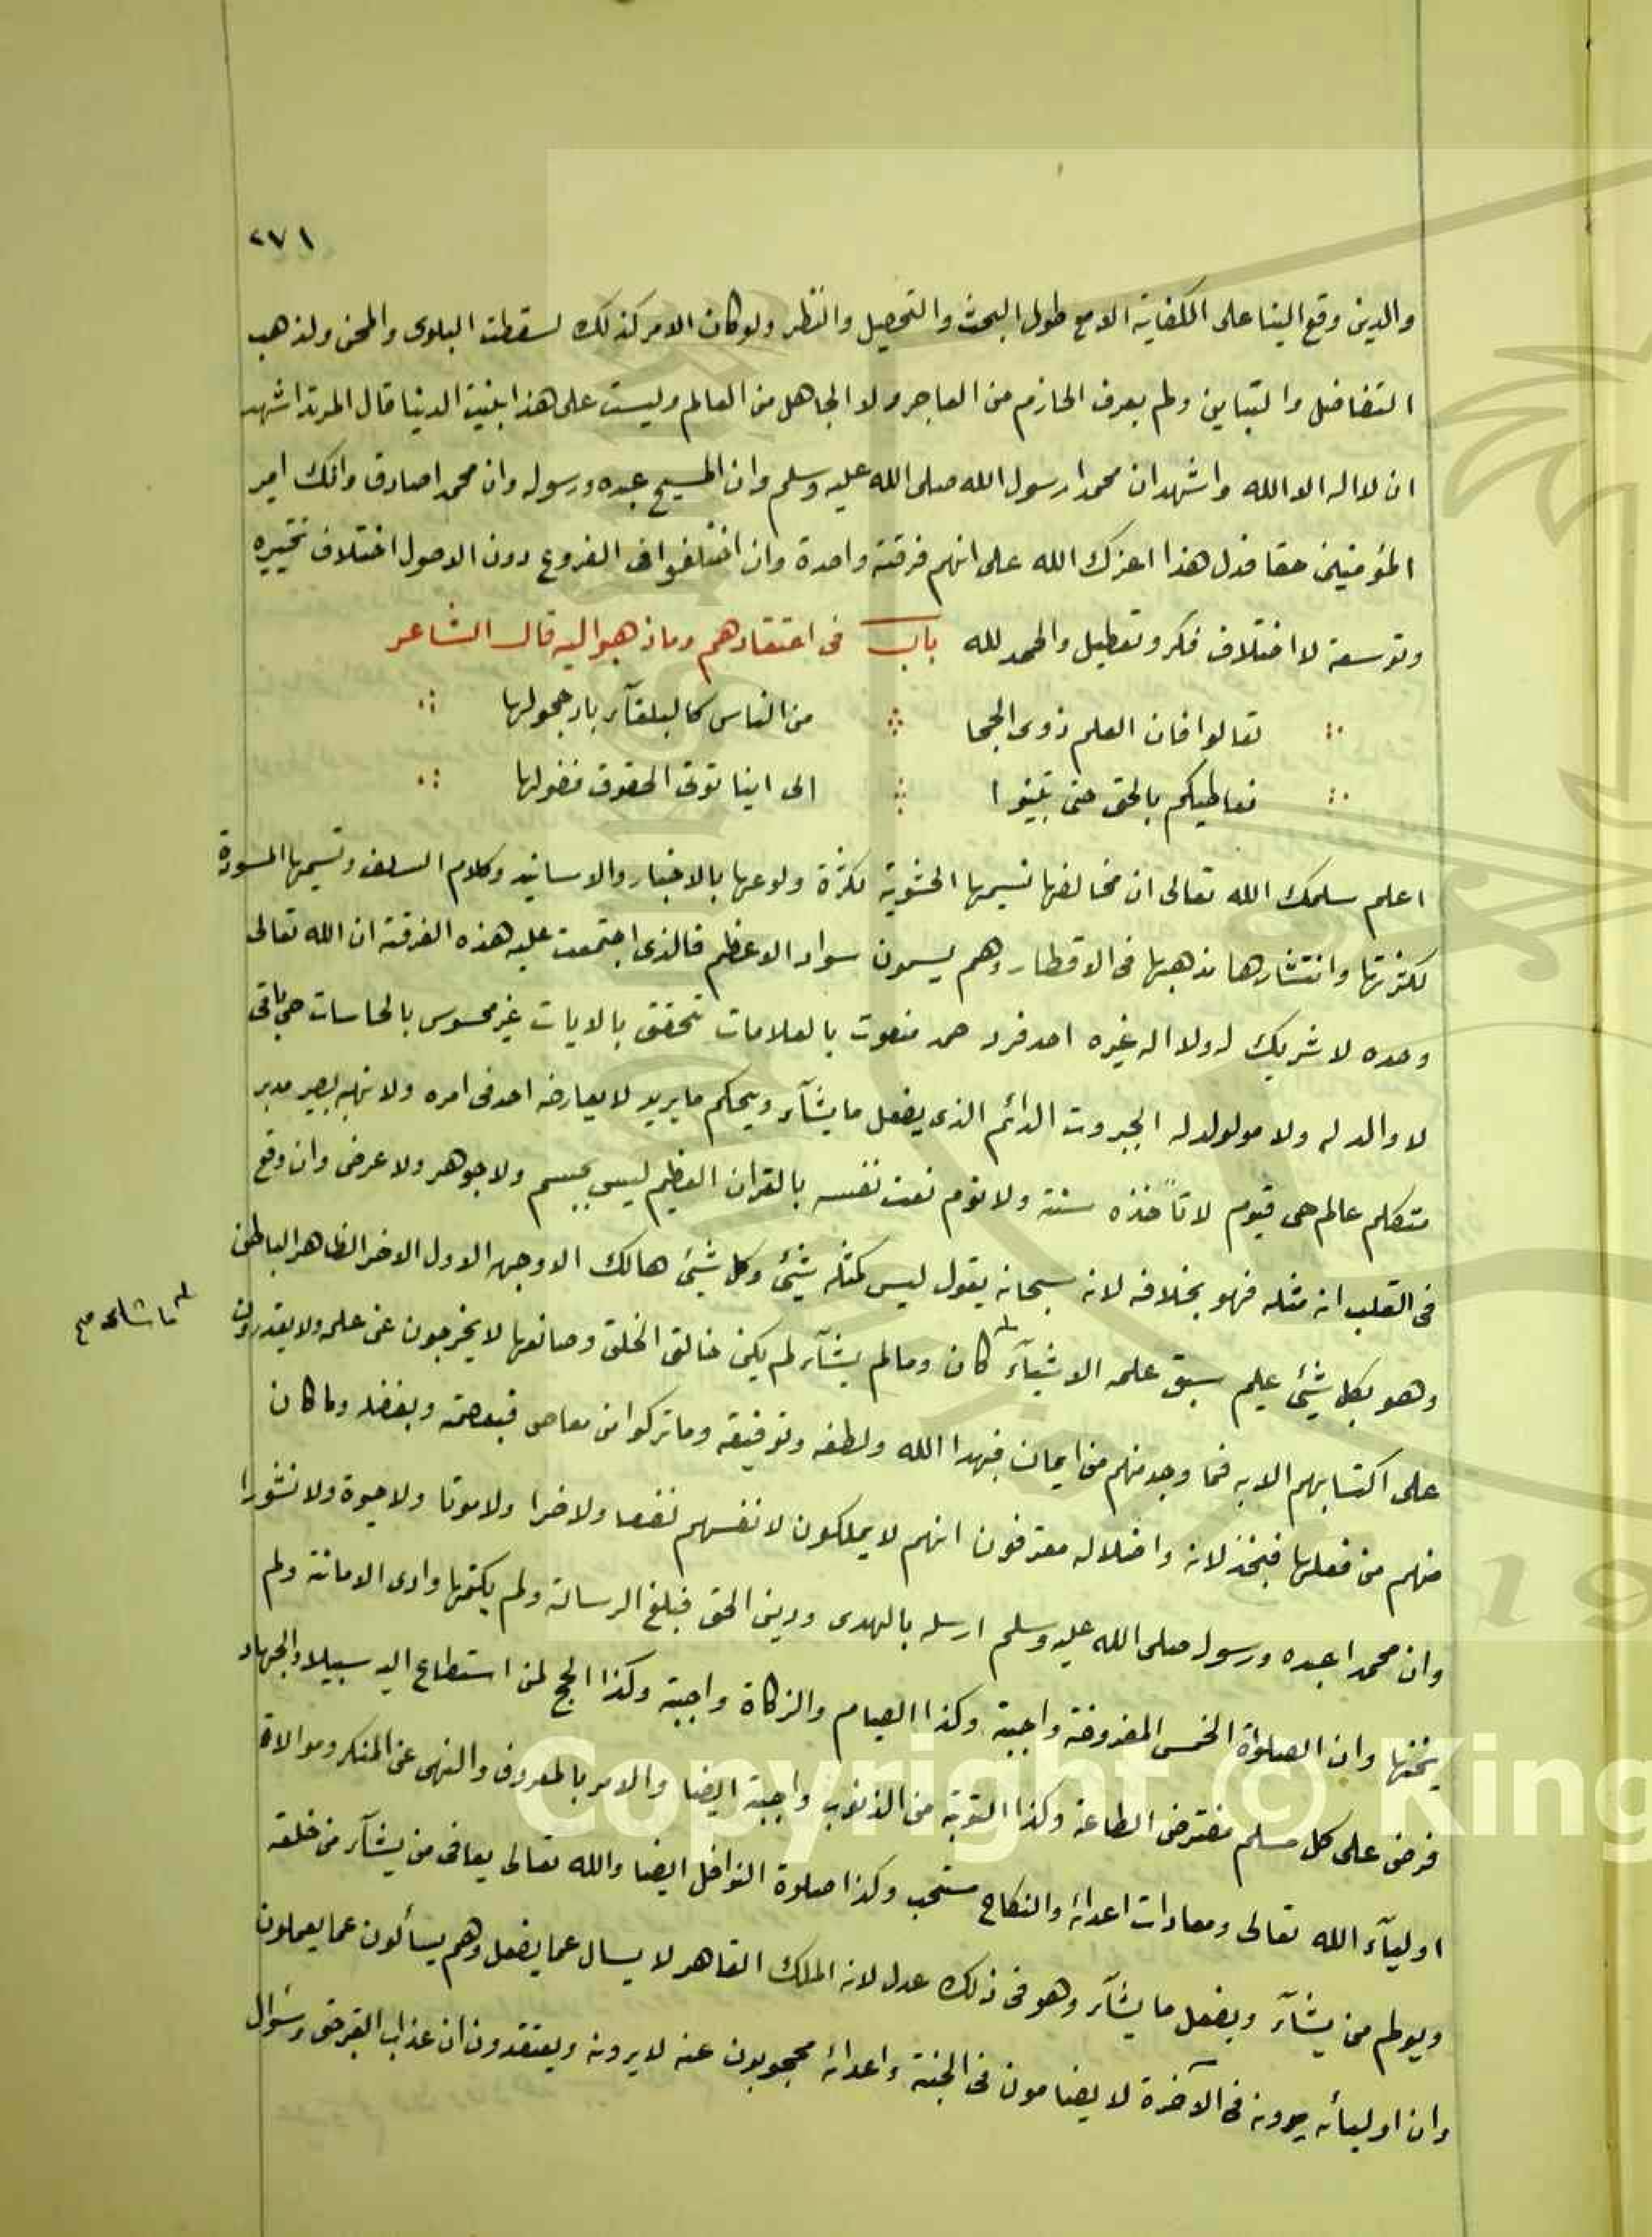 ٢٧١
والدين وقع الينا على الكفاية الا مع طول البحث والتحصيل والنظر ولو كان الامر كذلك لسقطت البلوى والمحن ولذهب
التفاضل والتباين ولم يعرف الحازم من العاجز ولا الجاهل من العالم وليست على هذا بنيت الدنيا قال المرتد اشهد
ان لا اله الا الله واشهد ان محمدا رسول الله صلى الله عليه وسلم وان المسيح عبده ورسوله وان محمدا صادق وانك امير
المؤمنين حقا فدل هذا اعزك الله على انهم فرقة واحدة وان اختلفوا فى الفروع دون الاصول اختلاف تخيير
وتوسعة لا اختلاف فكر وتعطيل والحمد لله باب فى اعتقادهم وما ذهبوا اليه قال الشاعر
تعالوا فان العلم ذوى الحجا من الناس كالبلقآء باد حجولها
نعاطيكم بالحق حتى تبينوا الى اينا توتى الحقوق فضولها
اعلم سلمك الله تعالى ان مخالفها تسيمها الحشوية لكثرة ولوعها بالاخبار والاسانيد وكلام السلف وتسيمها المسودة
لكثرتها وانتشارها مذهبها فى الاقطار وهم يسمون سواد الاعظم فالذى اجتمعت عليه هذه الفرقة ان الله تعالى
وحده لا شريك له ولا اله غيره احد فرد صمد منعوت بالعلامات تحقق بالايات غير محسوس بالحاسات حى باقى
لا والد له ولا مولولد له الجبروت الدائم الذى يفعل ما يشآء ويحكم ما يريد لا يعارضه احد فى امره ولا نهيه بصير مدبر
متكلم عالم حى قيوم لا تأخذه سنة ولا نوم نعت نفسه بالقران العظيم ليس بجسم ولا جوهر ولا عرض وان وقع
فى القلب انه مثله فهو بخلافه لانه سبحانه يقول ليس كمثله شيئ وكل شيئ هالك الا وجهه الاول الاخر الظاهر الباطن
وهو بكل شيئ عليم سبق علمه الاشيآء كان وما لم يشآء لم يكن خالق الخلق وصانعها لا يخرجون عن علمه ولا يقدرون
ما شاءه صح
على اكتسابهم الا به فما وجد منهم من ايمان فبهدا الله ولطفه وتوفيقه وما تركوا من معاصى فبعصمته وبفضله وما كان
منهم من فعلها فبخذلانه واضلاله معترفون انهم لا يملكون لانفسهم نفعا ولا ضرا ولا موتا ولا حيوة ولا نشورا
وان محمدا عبده ورسوله صلى الله عليه وسلم ارسله بالهدى ودين الحق فبلغ الرسالة ولم يكتمها وادى الامانة ولم
يخنها وان الصلواة الخمس المفروضة واجبة وكذا الصيام والزكاة واجبة وكذا الحج لمن استطاع اليه سبيلا والجهاد
فرض على كل مسلم مفترض الطاعة وكذا التوبة من الذنوب واجبة ايضا والامر بالمعروف والنهى عن المنكر وموالاة
اوليآء الله تعالى ومعادات اعدائه والنكاح مستحب وكذا صلوة النوافل ايضا والله تعالى يعافى من يشآء من خلقه
ويولم من يشآء ويفعل ما يشآء وهو فى ذلك عدل لانه الملك القاهر لا يسال عما يفعل وهم يسألون عما يعملون
وان اوليائه يرونه فى الآخرة لا يضامون فى الجنة واعدائه محجوبون عنه لا يرونه ويعتقدون ان عذاب القبر حق وسؤال
Copyright © King